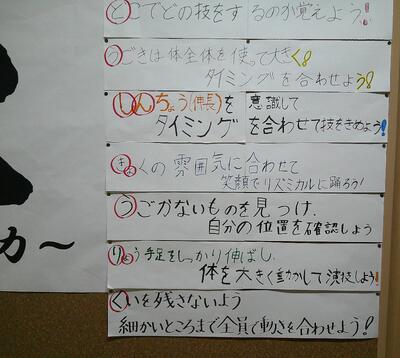 どこでどの技をするのか覚えよう!
うごきは体全体を使って大きく!
タイミングを合わせよう!
しんちょう(伸長)を意識して
タイミングを合わせて技をきめよう!
きょくの雰囲気に合わせて
笑顔でリズミカルに踊ろう!
うごかないものを見つけ、
自分の位置を確認しよう
りょう手足をしっかり伸ばし、
体を大きく動かして演技しよう!
くいを残さないよう
細かいところまで全員で動きを合わせよう!
カ〜